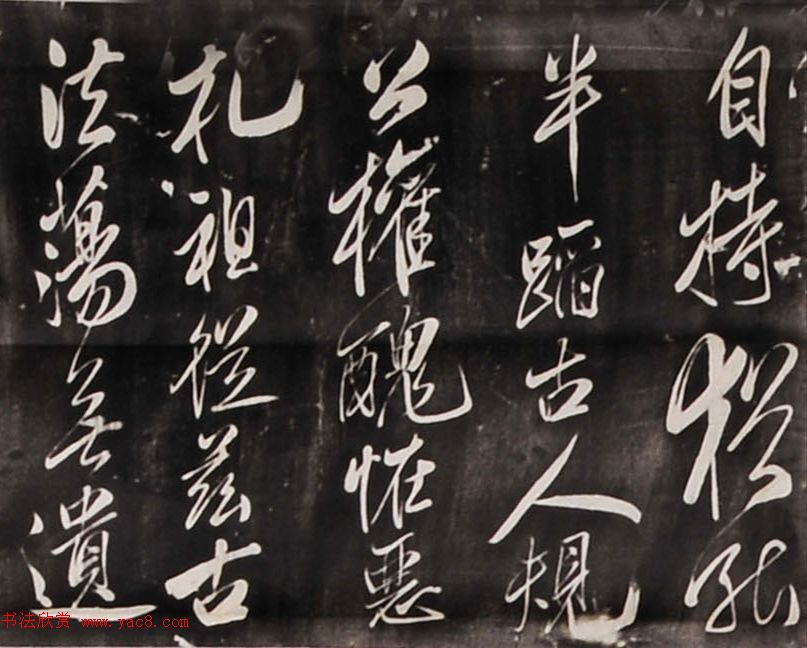 自持猶能
半蹈古人規
公權醜恠惡
札祖從茲古
法蕩無遺
书法欣赏 www.yac8.com